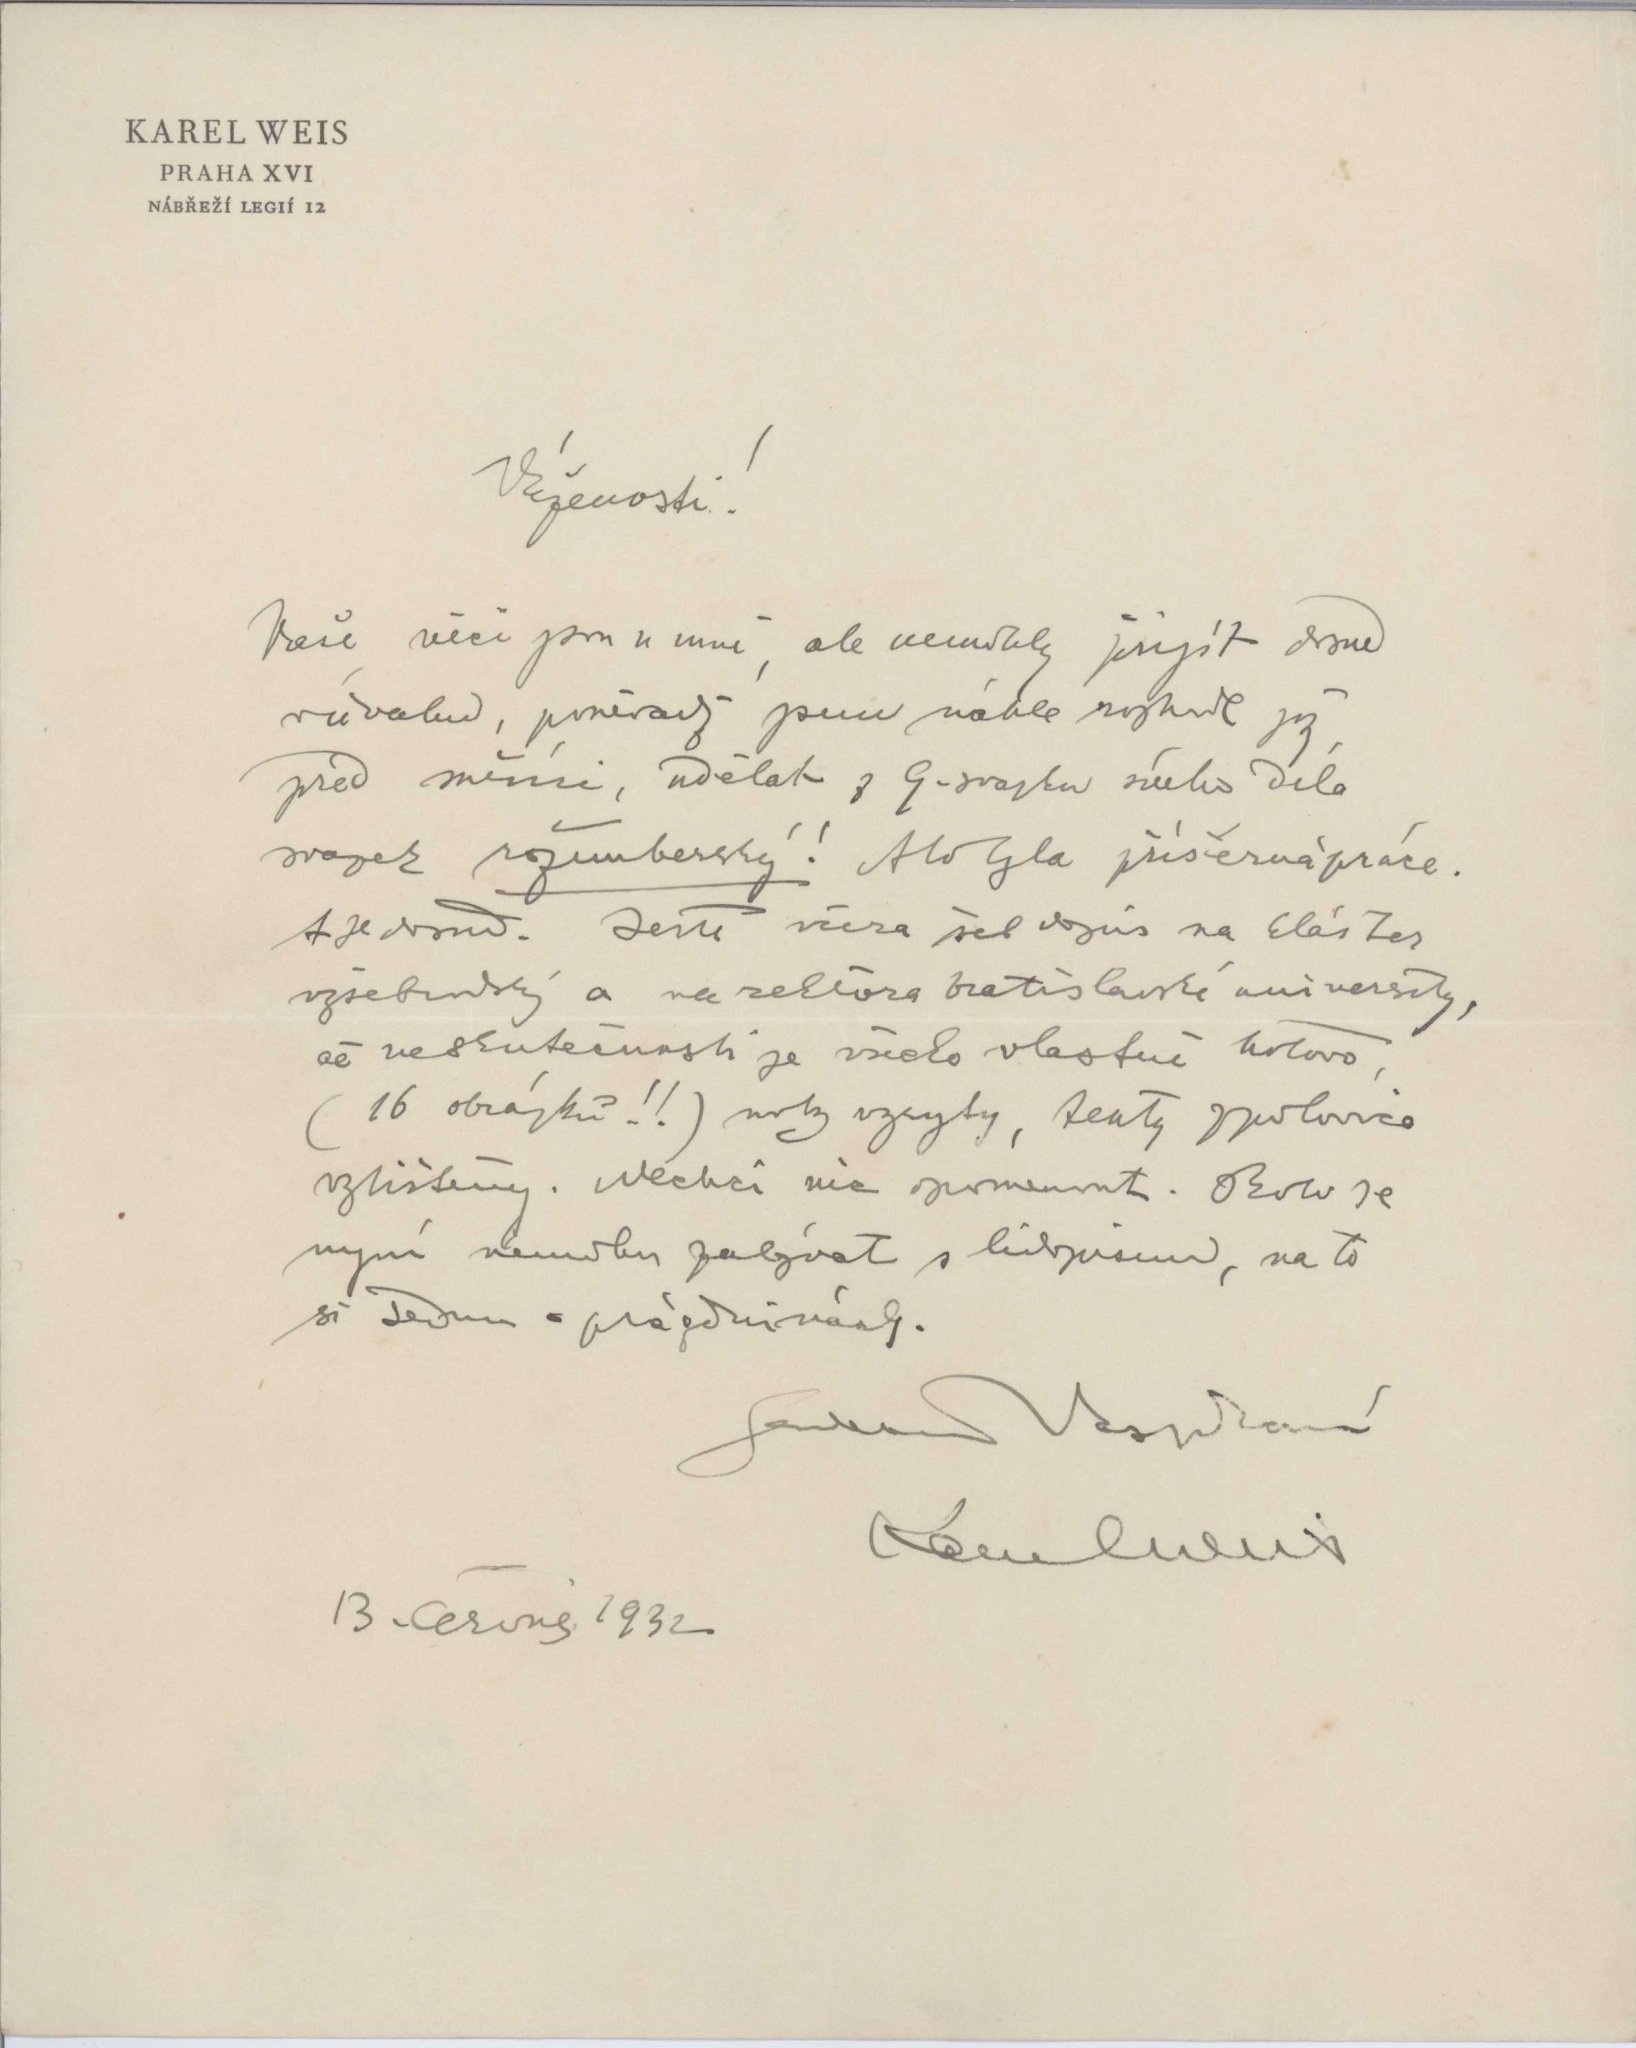 KAREL WEIS
PRAHA XVI
NÁBŘEŽÍ LEGIÍ 12
Váženosti!
Vaše věci jsou u mně, ale nemohly přijít dosud
poněvadž jsem náhle rozhodl již
před měsíci, udělat z 9. svazku mého díla
svazek rožmberský! A to byla příšerná práce.
A je dosud. Ještě včera šel dopis na klášter
vyšebrodský a na rektora bratislavské university,
ač ve skutečnosti je všecko vlastně hotovo,
(16 obrázků!!) noty vyryty, texty z polovice
vytištěny. Nechci nic opomenout. Proto se
nyní nemohu zabývat s , na to
si sednu o prázdninách.
13. června 1932
Karel Weis